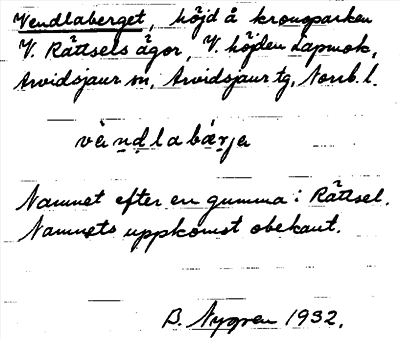 Vendlaberget, höjd å kronoparken
V. Råttsels ågor, V. höjden Lapmok,
Arvidsjaur sn, Arvidsjaur tg, Norrb. l.
vèndlabærja
Namnet efter en gumma i Råttsel.
Namnets uppkomst obekant.
B. Nygren 1932.